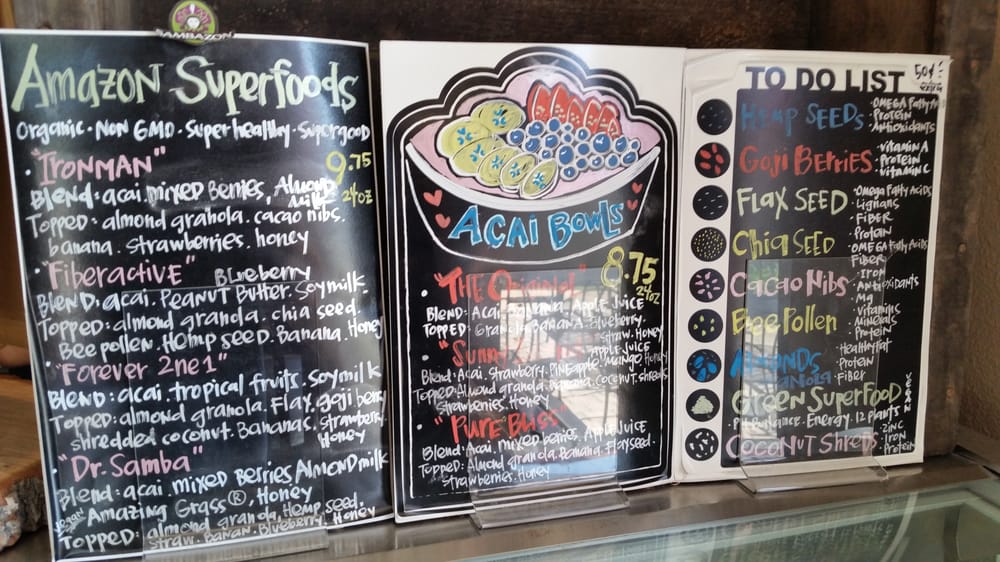 SAMBAZON
Amazon Superfoods
Organic · Non GMO · Super healthy · Supergood
"Ironman" 9.75
Blend: acai. mixed Berries, Almond Milk 24oz
Topped: almond granola. cacao nibs.
banana. strawberries. honey
"Fiberactive" Blueberry
Blend: acai. Peanut Butter. Soymilk.
Topped: almond granola. chia seed.
Bee pollen. Hemp seed. Banana. Honey
"Forever 2ne1"
Blend: acai. tropical fruits. Soymilk
Topped: almond granola. Flax. goji berry
shredded coconut. Bananas. Strawberry
Honey
"Dr. Samba"
Blend: acai. mixed Berries Almond milk
Amazing Grass®, Honey
Topped: almond granola, Hemp seed.
straw. Banan. Blueberry. Honey
Acai Bowls
"The Original" 8.75
24oz
Blend: Acai. Banana. Apple Juice
Topped: Granola. Banana. Blueberry.
straw. Honey
Apple Juice
Blend: Acai. Strawberry. Pineapple. Mango Honey
Topped: Almond granola. banana. coconut. shreds
Strawberries. Honey
"Pure Bliss"
Blend: Acai. mixed berries. Apple Juice
Topped: Almond granola. Banana. Flaxseed.
Strawberries. Honey
TO DO LIST 50¢ extra
Hemp Seeds · Omega Fatty
· Protein
· Antioxidants
Goji Berries · Vitamin A
· Protein
· Vitamin C
Flax Seed · Omega Fatty Acids
· Lignans
· Fiber
· Protein
Chia Seed · Omega Fatty Acids
Fiber
Cacao Nibs · Iron
· Antioxidants
· Mg
Bee Pollen · Vitamins
· Minerals
· Protein
Almonds · Healthy fat
· Protein
· Fiber
Green Superfood VEGAN
PH Balance. Energy. 12 plants
Coconut Shreds · Zinc
· Iron
· Protein